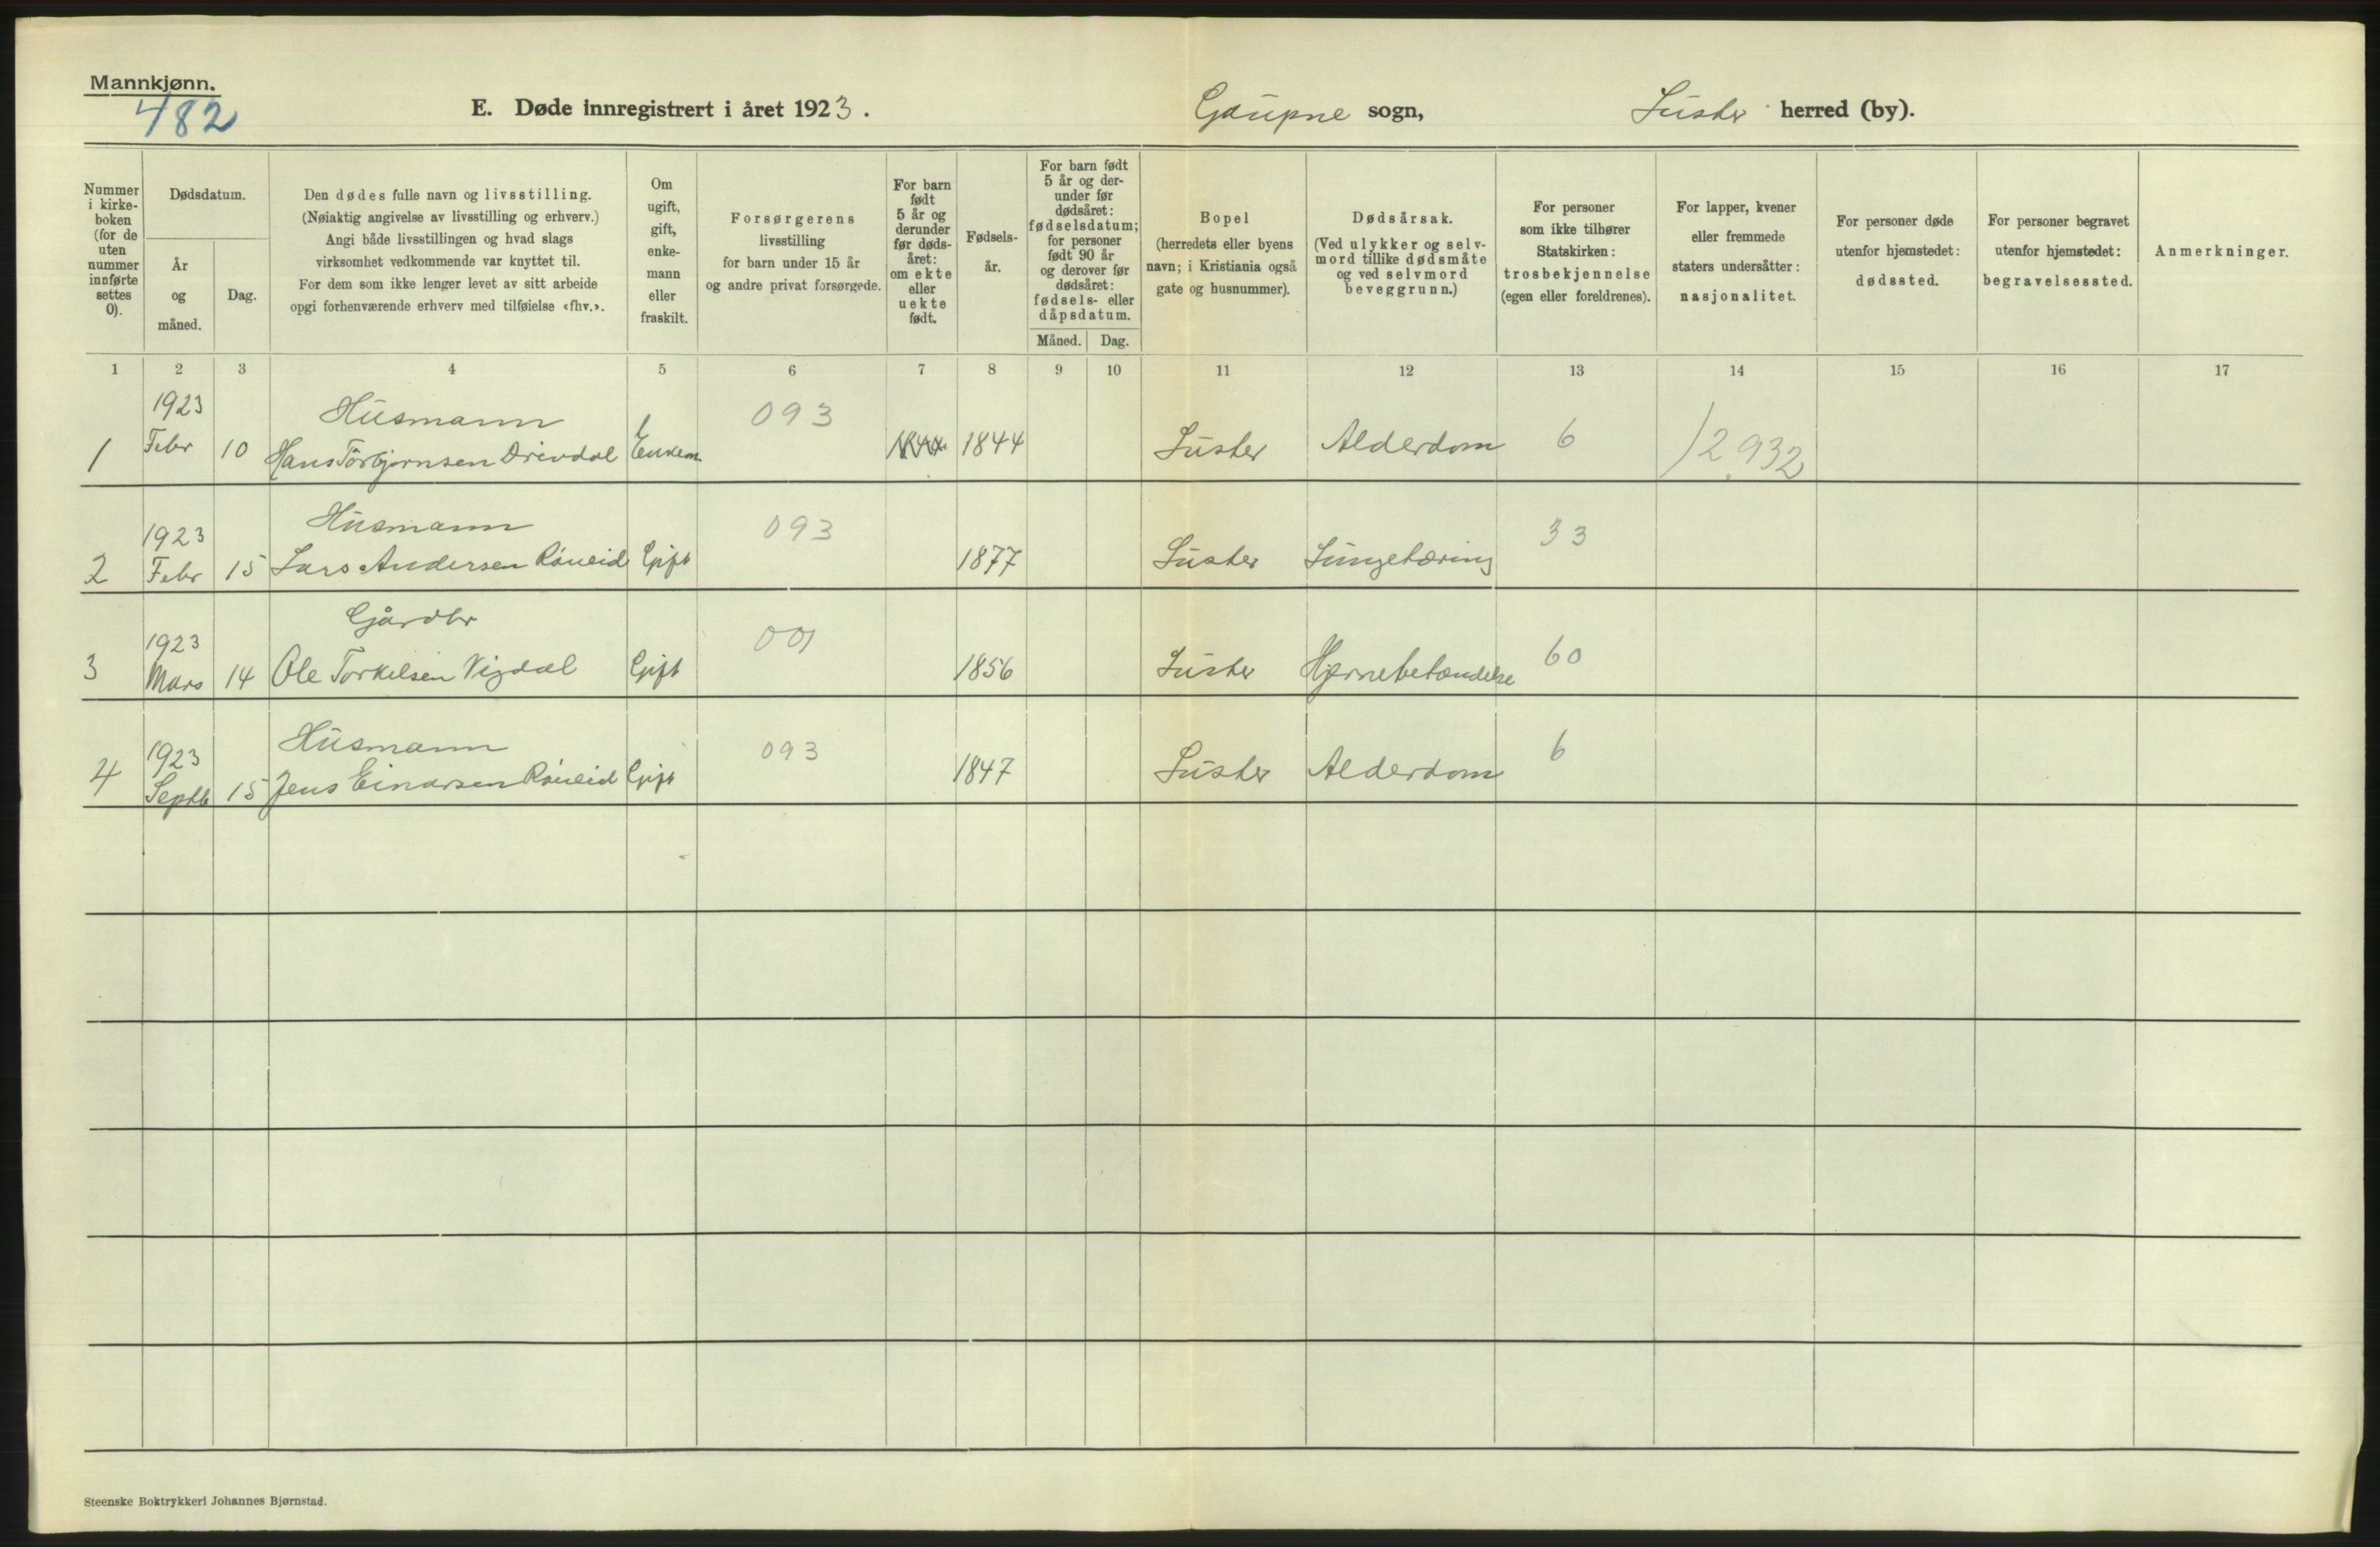 Mannkjønn.
482
E. Døde innregistrert i året 1923. Gaupne sogn, Luster herred (by).
Nummer
i kirke-
boken
(for de
uten
nummer
innførte
settes
0).
Dødsdatum.
År
og
måned.
Dag.
Den dødes fulle navn og livsstilling.
(Nøiaktig angivelse av livsstilling og erhverv.)
Angi både livsstillingen og hvad slags
virksomhet vedkommende var knyttet til.
For dem som ikke lenger levet av sitt arbeide
opgi forhenværende erhverv med tilføielse «fhv.».
Om
ugift,
gift,
enke-
mann
eller
fraskilt.
Forsørgerens
livsstilling
for barn under 15 år
og andre privat forsørgede.
For barn
født
5 år og
derunder
før døds-
året:
om ekte
eller
uekte
født.
Fødsels-
år.
For barn født
5 år og der-
under før
dødsåret:
fødselsdatum;
for personer
født 90 år
og derover før
dødsåret:
fødsels- eller
dåpsdatum.
Måned. Dag.
Bopel
(herredets eller byens
navn; i Kristiania også
gate og husnummer).
Dødsårsak.
(Ved ulykker og selv-
mord tillike dødsmåte
og ved selvmord
beveggrunn.)
For personer
som ikke tilhører
Statskirken:
trosbekjennelse
(egen eller foreldrenes).
For lapper, kvener
eller fremmede
staters undersåtter:
nasjonalitet.
For personer døde
utenfor hjemstedet:
dødssted.
For personer begravet
utenfor hjemstedet:
begravelsessted.
Anmerkninger.
1 2 3 4 5 6 7 8 9 10 11 12 13 14 15 16 17
1923 Husmann 093
1 Febr 10 Hans Torbjørnsen Drivdal Enkem. 1844 1844 Luster Alderdom 6 12932
1923 Husmann 093 33
2 Febr 15 Lars Andersen Røneid Gift 1877 Luster Lungetæring
1923 Gårdbr 001
3 Mars 14 Ole Torkelsen Vigdal Gift 1856 Luster Hjernebetændelse 60
1923 Husmann 093 6
4 Septb 15 Jens Einarsen Røneid Gift 1847 Luster Alderdom
Steenske Boktrykkeri Johannes Bjørnstad.